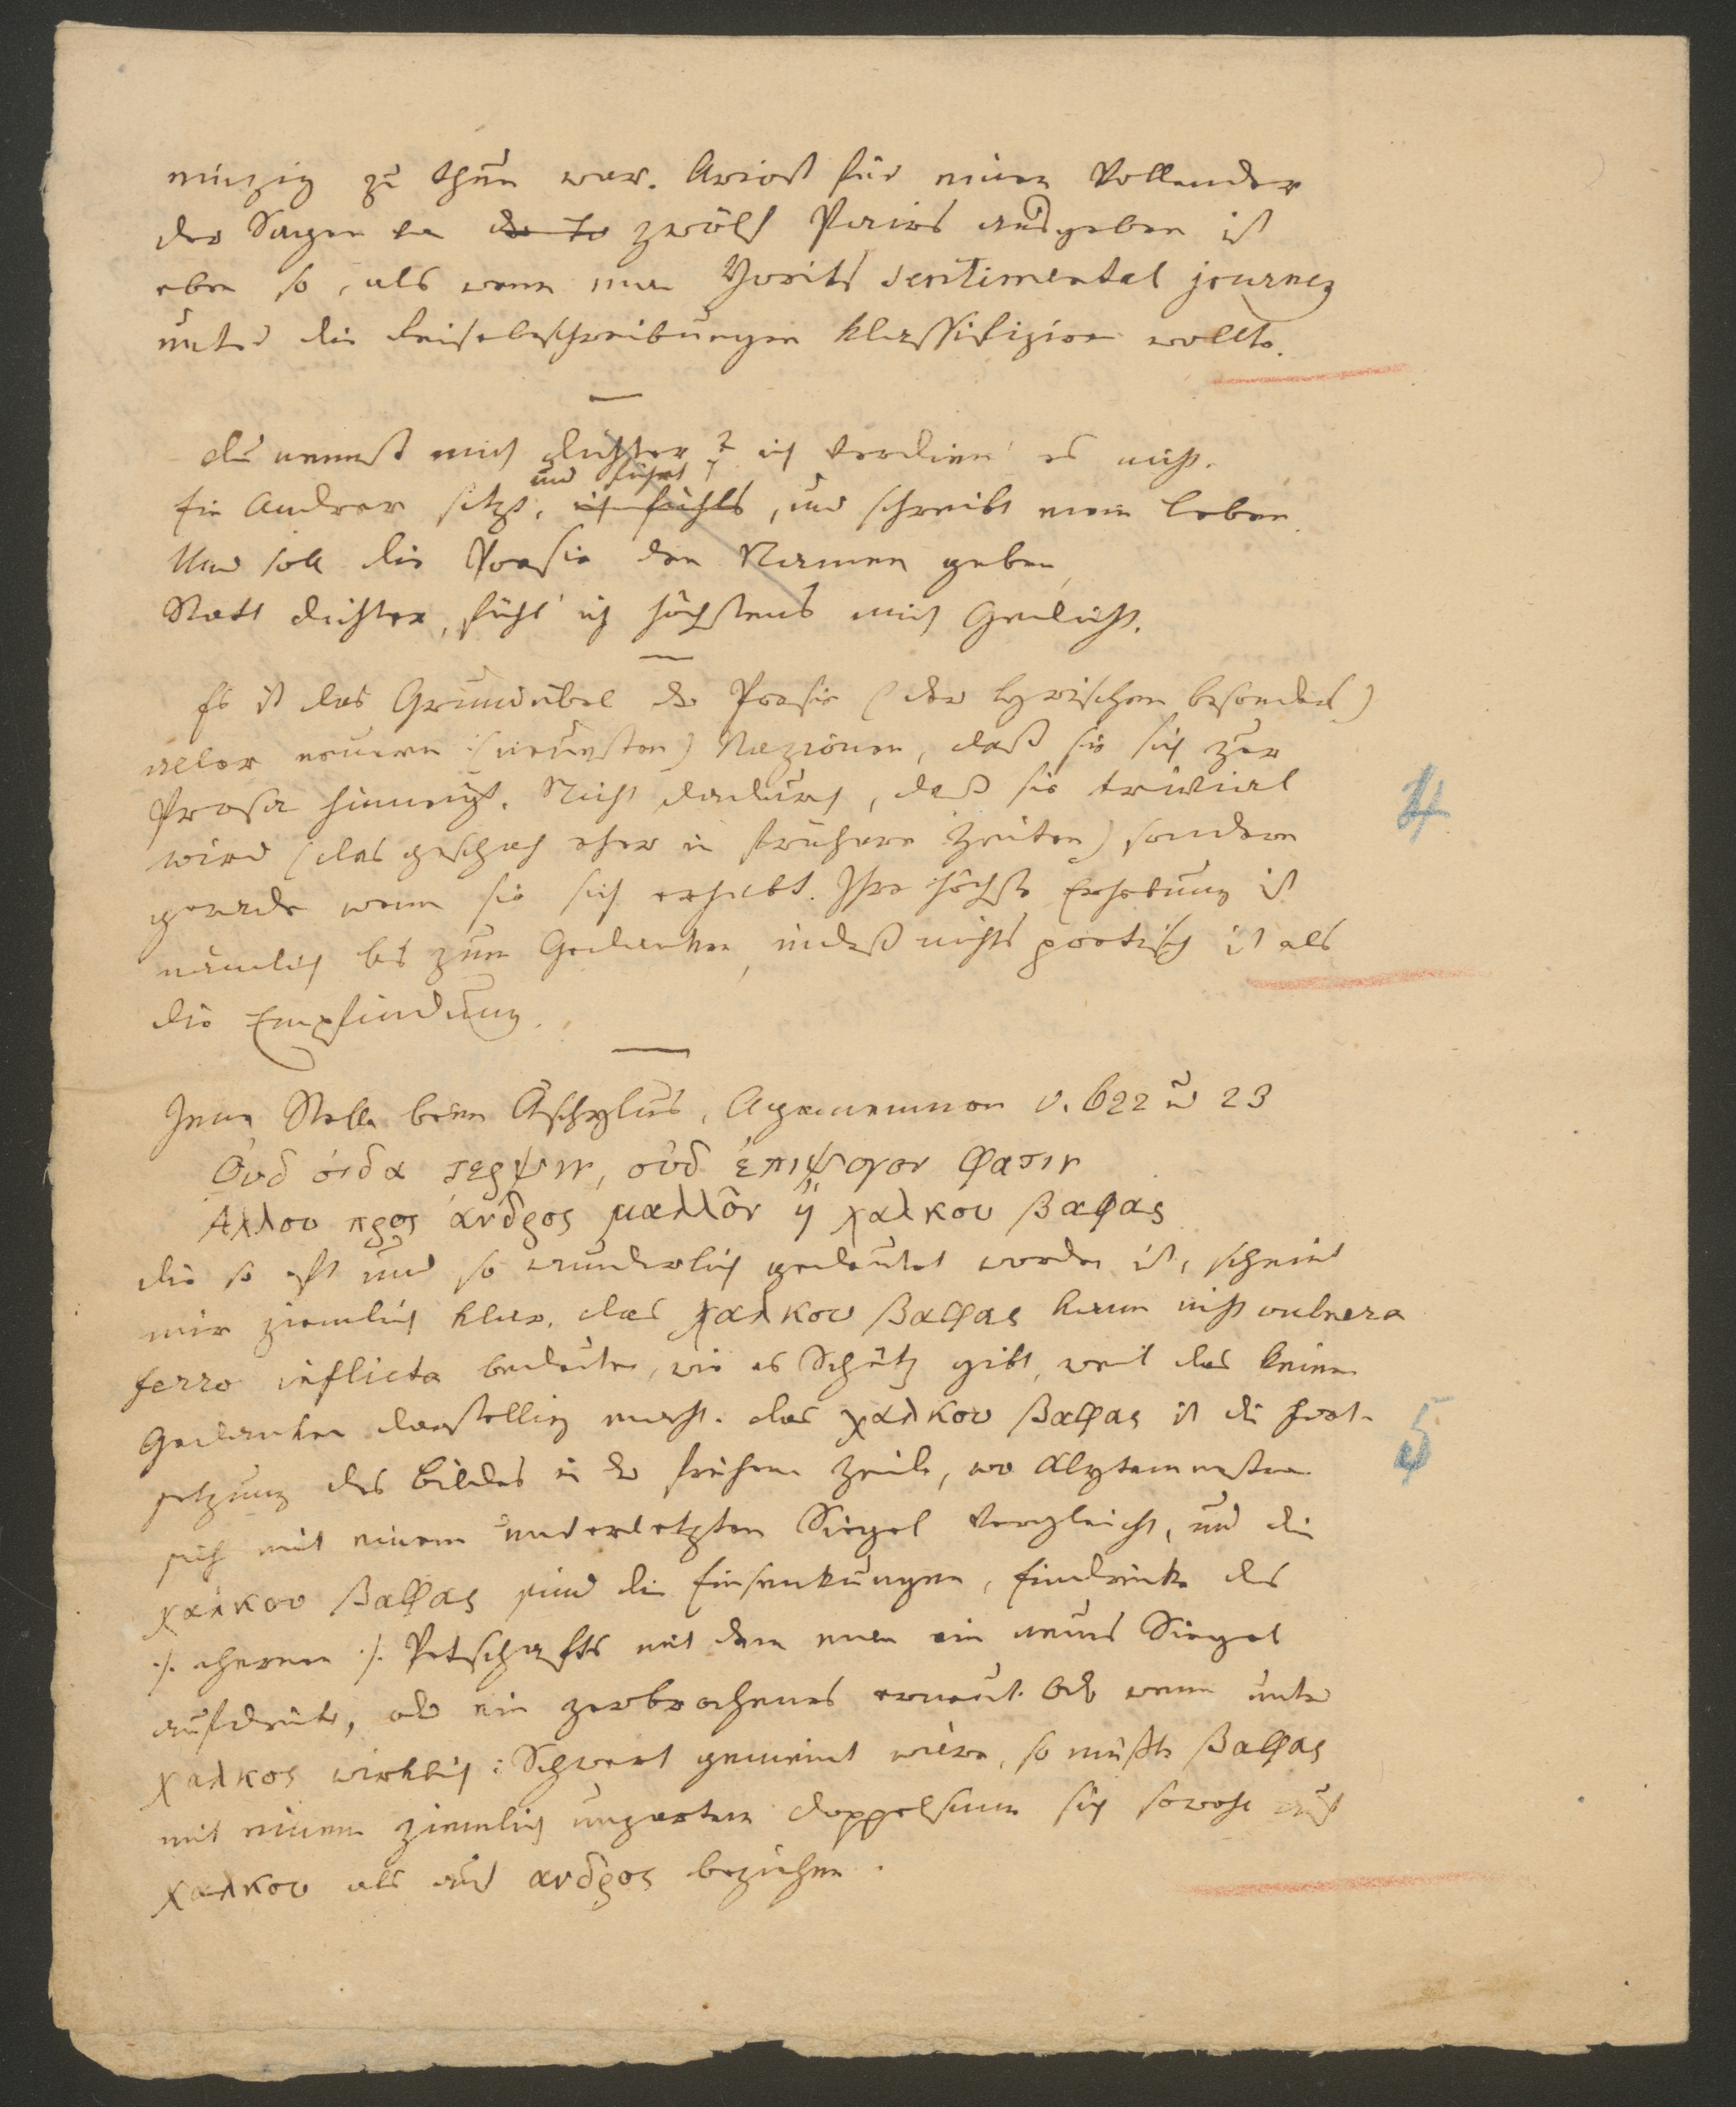 einzig zu thun war. Ariost für einen Vollender
der Sagen der zwölf Pairs ausgeben ist
eben so, als wenn man Yoriks sentimental journey
unter die Reisebeschreibungen klassifiziren wollte.
Du nennst mich Dichter? ich verdien' es nicht.
und fühlt
Ein Andrer sitzt, ich fühls, und schreibt mein Leben
Und soll die Poesie den Namen geben,
Statt Dichter, fühl' ich höchstens mich Gedicht.
Es ist das Grundübel der Poesie (der lyrischen besonders)
aller neuern (neuesten) Nazionen, daß sie sich zur
Prosa hinneigt. Nicht dadurch, daß sie trivial
wird (das geschah eher in frühern Zeiten) sondern
gerade wenn sie sich erhebt. Ihre höchste Erhebung ist
nämlich bis zum Gedanken, indeß nichts poetisch ist als
die Empfindung.
4
Jene Stelle beim Äschylus, Agamemnon v. 622 u 23
Ουδ οιδα τερψιν, ουδ επιψογον φατιν
Αλλου προς ανδρος μαλλον ή χαλκου βαφας
die so oft und so wunderlich gedeutet worden ist, scheint
mir ziemlich klar. Das χαλκου βαφας kann nicht vulnera
ferro inflicta bedeuten, wie es Schütz gibt, weil das keinen
Gedanken darstellig macht. Das χαλκου βαφας ist die Fort-
setzung des Bildes in der frühern Zeile, wo Klytemnestra
sich mit einem unverletzten Siegel vergleicht, und die
χαλκου βαφας sind die Einsenkungen, Eindrücke des
·/. ehernen ·/. Petschafts mit dem man ein neues Siegel
aufdrückt, oder ein zerbrochenes erneut. Oder wenn unter
χαλκος wirklich: Schwert gemeint wäre, so müßte βαφας
mit einem ziemlich unzarten Doppelsinn sich sowohl auf
χαλκου als auf ανδρος beziehen.
5